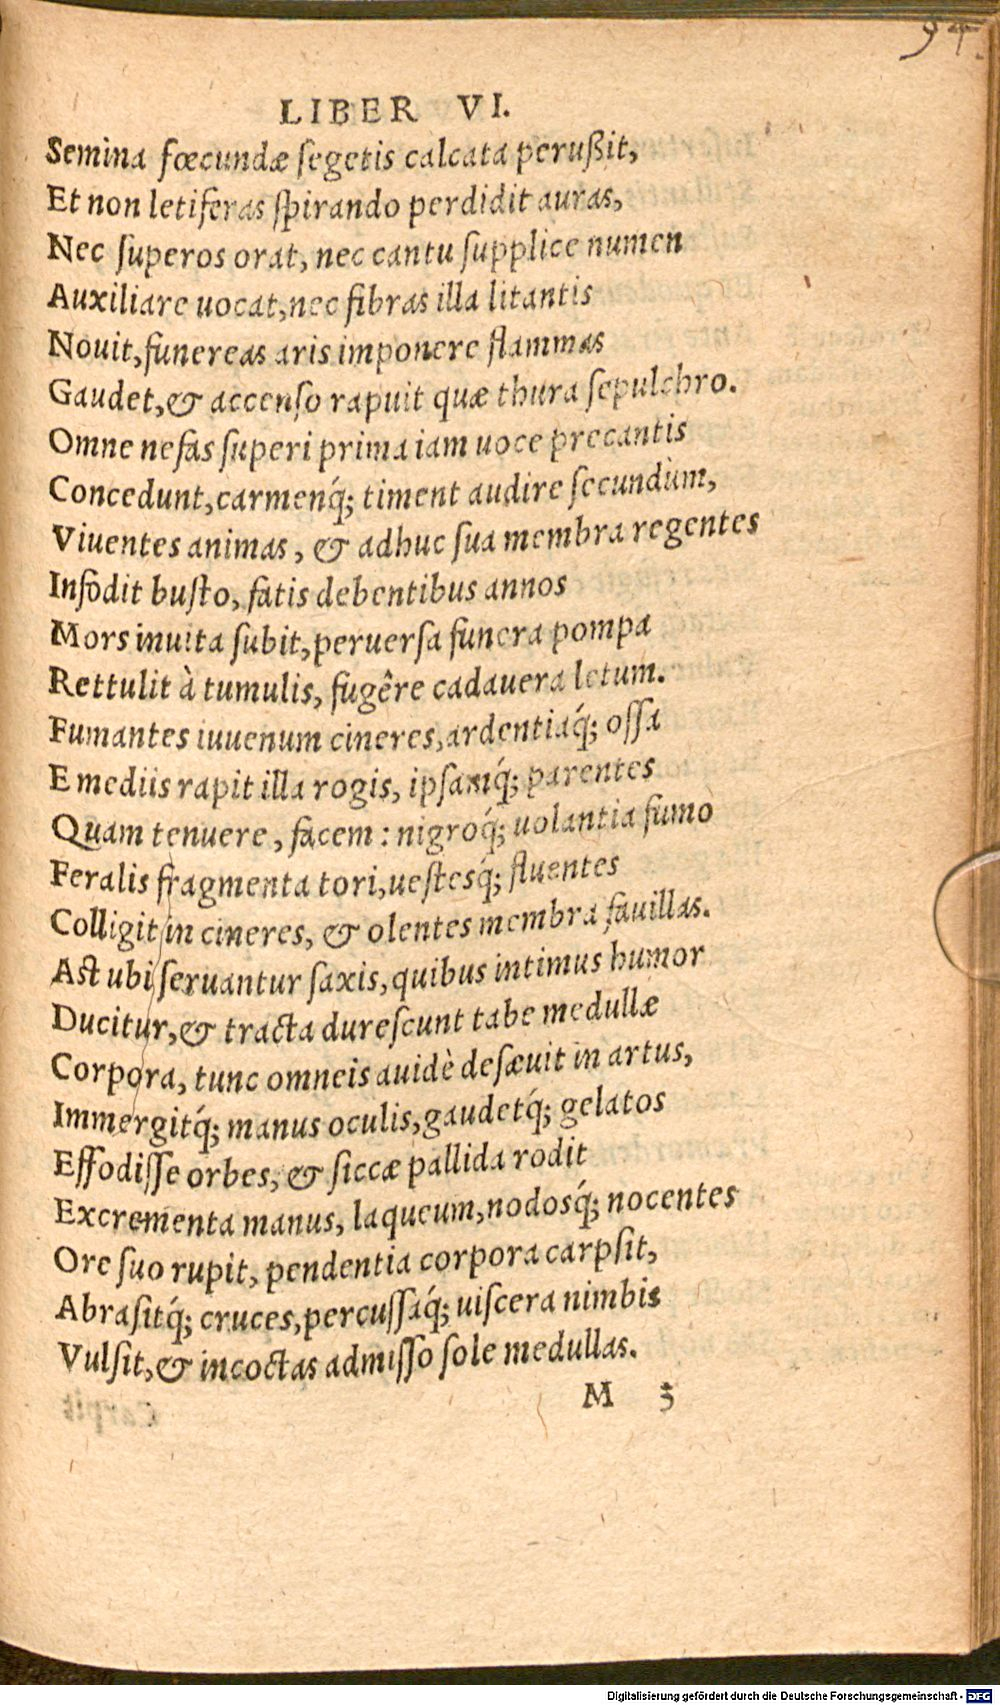 94.
LIBER VI.
Semina fœcundæ ſegetis calcata perußit,
Et non letiferas ſpirando perdidit auras,
Nec ſuperos orat, nec cantu ſupplice numen
Auxiliare uocat, nec fibras illa litantis
Nouit, funereas aris imponere flammas
Gaudet, & accenſo rapuit quæ thura ſepulchro.
Omne nefas ſuperi prima iam uoce precantis
Concedunt, carmenq́; timent audire ſecundùm,
Viuentes animas, & adhuc ſua membra regentes
Infodit buſto, fatis debentibus annos
Mors inuita ſubit, peruerſa funera pompa
Rettulit à tumulis, fugêre cadauera letum.
Fumantes iuuenum cineres, ardentiaq́; oſſa
E mediis rapit illa rogis, ipſamq́; parentes
Quam tenuere, facem: nigroq́; uolantia fumo
Feralis fragmenta tori, ueſtesq́; fluentes
Colligit in cineres, & olentes membra fauillas.
Aſt ubi ſeruantur ſaxis, quibus intimus humor
Ducitur, & tracta dureſcunt tabe medullæ
Corpora, tunc omneis auidè deſæuit in artus,
Immergitq́; manus oculis, gaudetq́; gelatos
Effodiſſe orbes, & ſiccæ pallida rodit
Excrementa manus, laqueum, nodosq́; nocentes
Ore ſuo rupit, pendentia corpora carpſit,
Abraſitq́; cruces, percuſſaq́; uiſcera nimbis
Vulſit, & incoctas admiſſo ſole medullas.
M 3
Digitalisierung gefördert durch die Deutsche Forschungsgemeinschaft - DFG